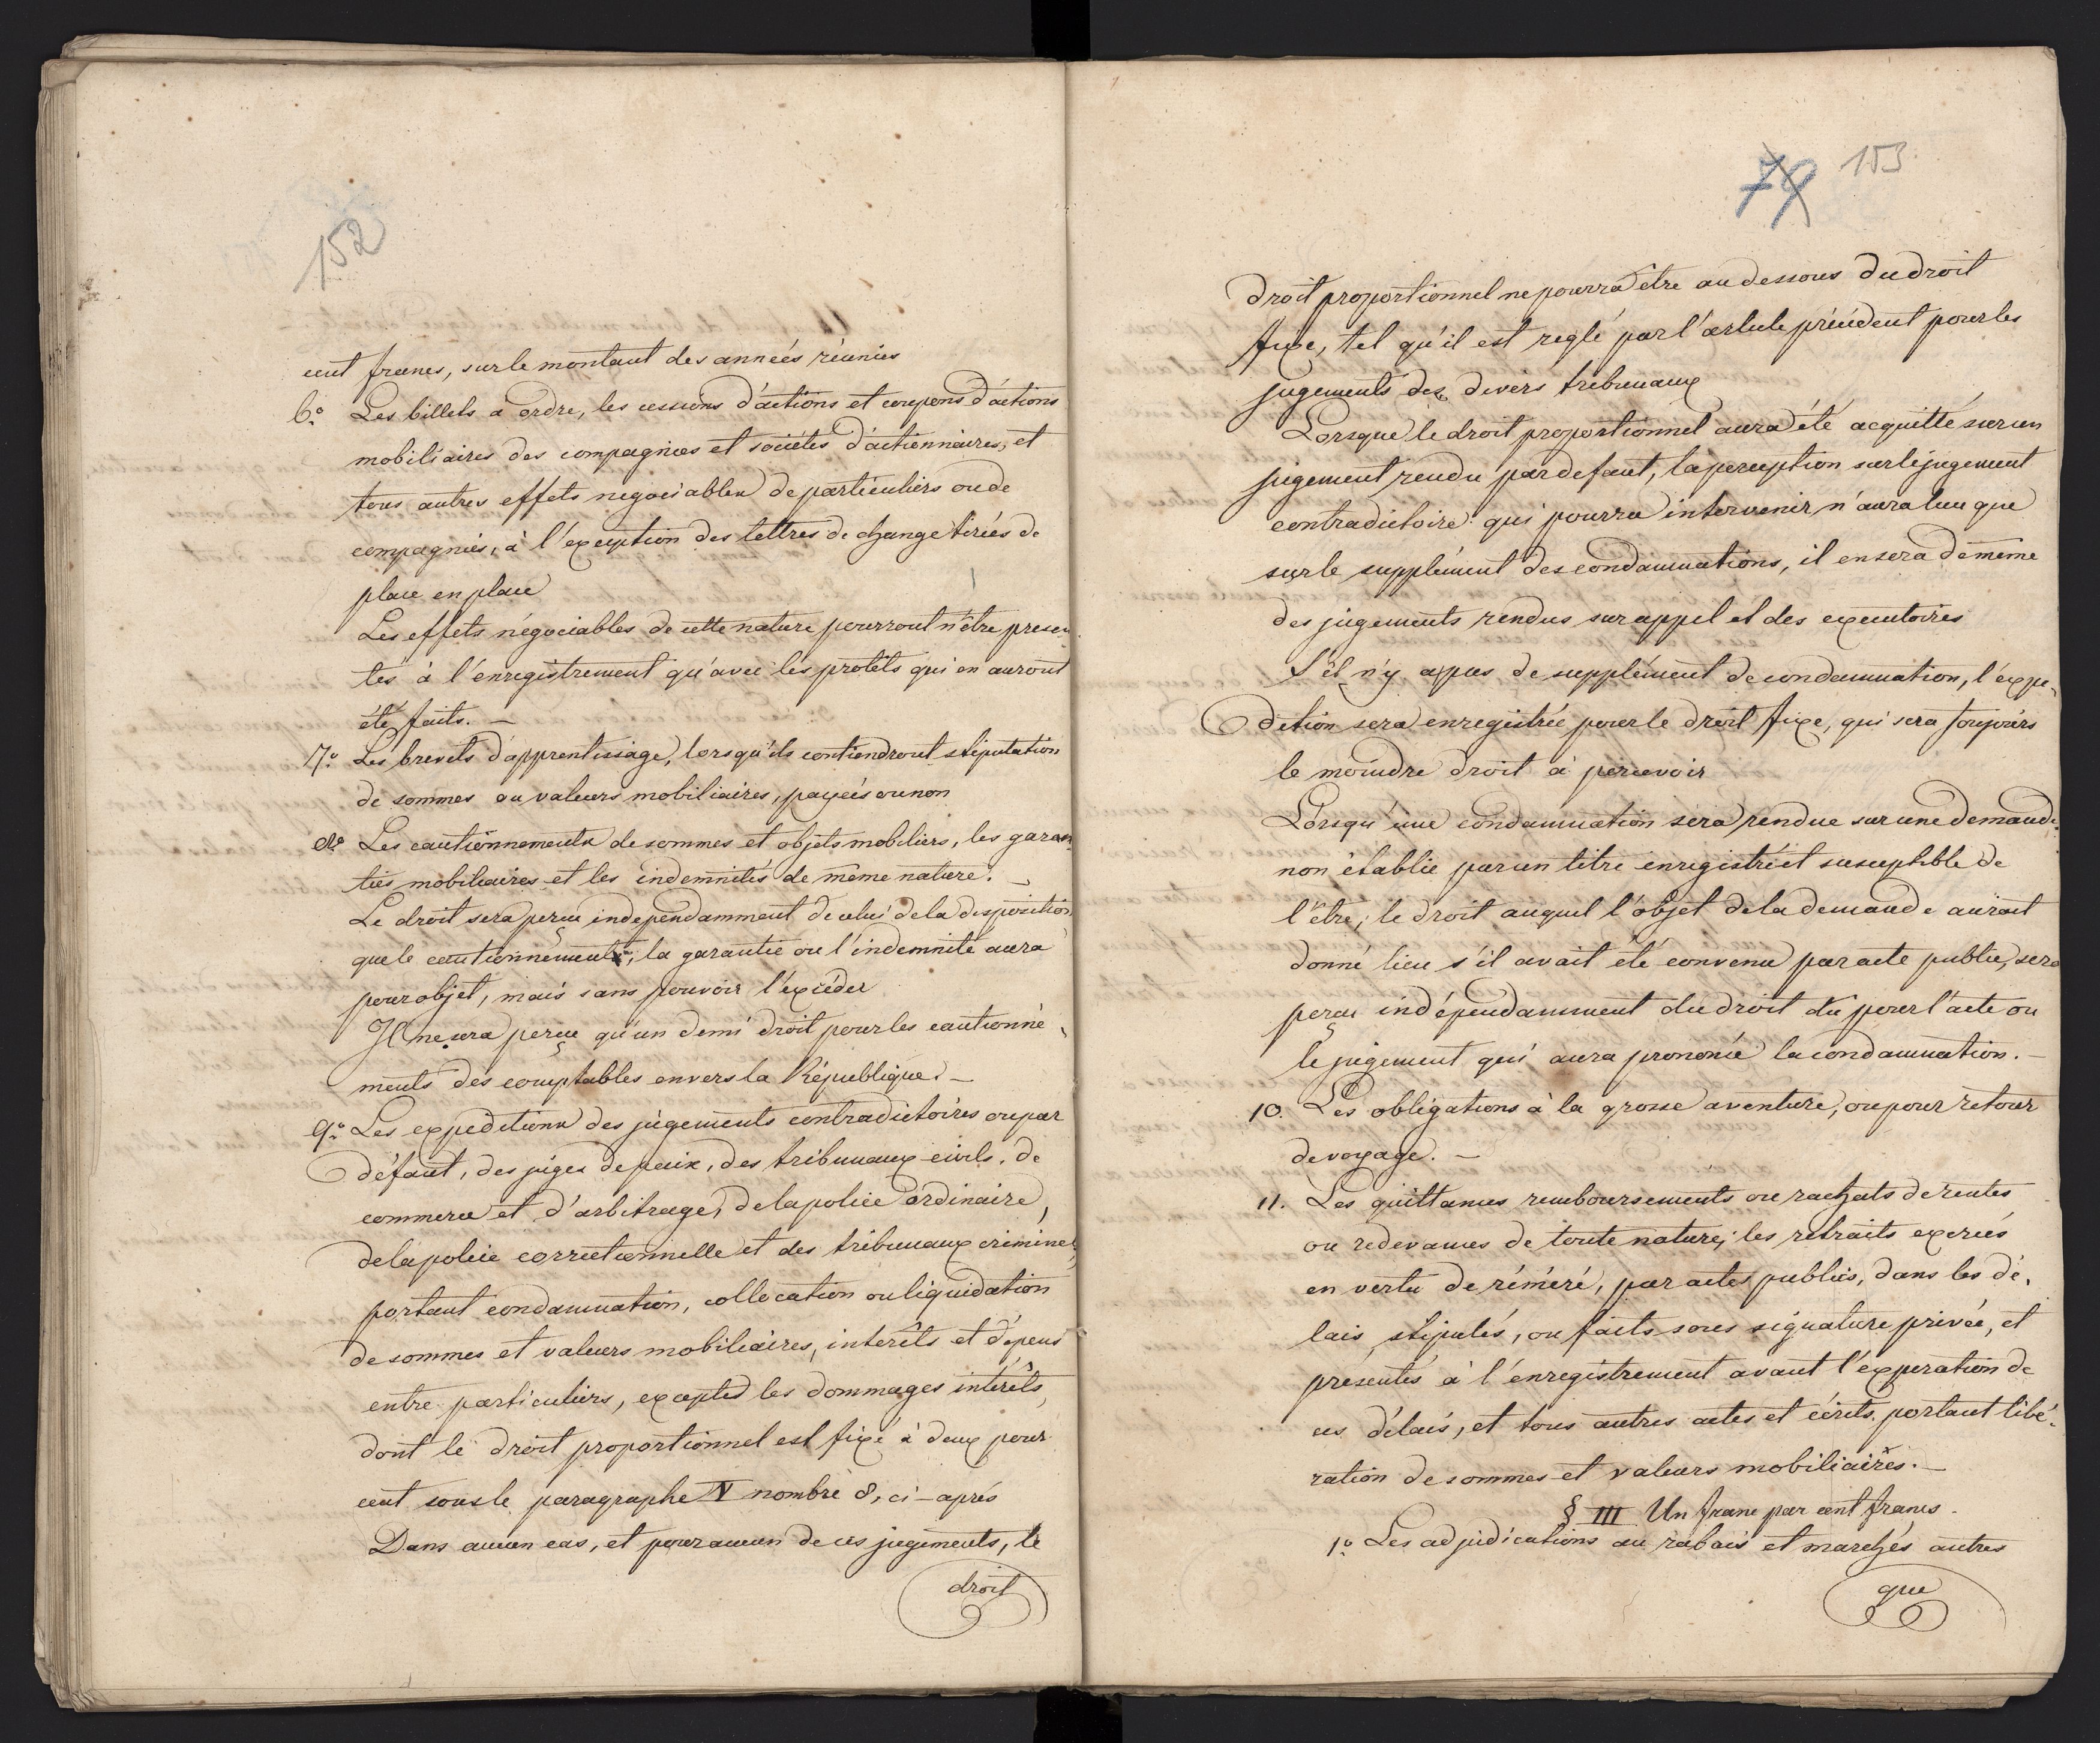 152
cent francs, sur le montant des années réunies
6.° Les billets a ordre, les cessions d'actions et coupons d'actions
mobiliaires des compagnies et sociétés d'actionnaires, et
tous autres effets negociables de particuliers ou de
compagnies, à l'exception des lettres de change tirées de
place en place
Les effets négociables de cette nature pourront n'être presen
tés à l'enregistrement qu'avec les protêts qui en auront
été faits. —
7.° Les brevets d'apprentissage, lorsqu'ils contiendront stipulation
de sommes ou valeurs mobiliaires, payées ou non
8.° Les cautionnements de sommes et objets mobiliers, les garan
ties mobiliaires et les indemnités de même nature. —
Le droit sera perçu independamment de celui de la disposition
que le cautionnement, la garantie ou l'indemnité aura
pour objet, mais sans pouvoir l'excéder
Il ne sera perçu qu'un demi droit pour les cautionne
ments des comptables envers la République. —
9.° Les expeditions des jugements contradictoires ou par
défaut, des juges de paix, des tribunaux civils, de
commerce et d'arbitrage, de la police ordinaire,
de la police correctionnelle et des tribunaux criminels
portant condamnation, collocation ou liquidation
de sommes et valeurs mobiliaires, intérêts et dépens
entre particuliers, exceptés les dommages intérêts,
dont le droit proportionnel est fixé à deux pour
cent sous le paragraphe V nombre 8, ci-après
Dans aucun cas, et pour aucun de ces jugements, le
droit
79 153
droit proportionnel ne pourra être au dessous du droit
fixe, tel qu'il est reglé par l'article précédent pour les
jugements des divers tribunaux
Lorsque le droit proportionnel aura été acquitté sur un
jugement rendu par defaut, la perception sur le jugement
contradictoire qui pourra intervenir n'aura lieu que
sur le supplément des condamnations, il en sera de même
des jugements rendus sur appel et des executoires
S'il n'y a pas de supplément de condamnation, l'expe
dition sera enregistrée pour le droit fixe, qui sera toujours
le moindre droit à percevoir
Lorsqu'une condamnation sera rendue sur une demande
non établie par un titre enregistré et susceptible de
l'être, le droit auquel l'objet de la demande auroit
donné lieu s'il avait été convenu par acte public, sera
perçu indépendamment du droit dû pour l'acte ou
le jugement qui aura prononcé la condamnation. —
10. Les obligations à la grosse aventure, ou pour retour
de voyage. —
11. Les quittances remboursements ou rachats de rentes
ou redevances de toute nature; les retraits exercés
en vertu de réméré, par actes publics, dans les dé
lais stipulés, ou faits sous signature privée, et
présentés à l'enregistrement avant l'experation de
ces délais, et tous autres actes et écrits portant libé
ration de sommes et valeurs mobiliaires. —
§ III Un franc par cent francs.
1.° Les adjudications au rabais et marchés autres
que